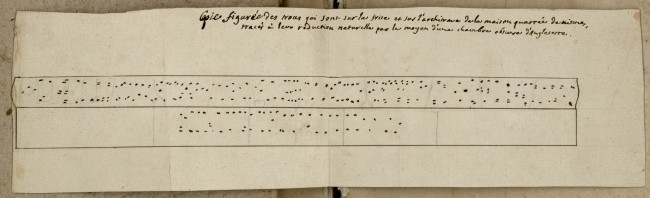 Copie figurée des trous qui sont sur la frise et sur l'architrave de la maison quarrée de nismes,
tracés à leur réduction naturelle par le moyen d'une chambre obscure d'Angleterre.